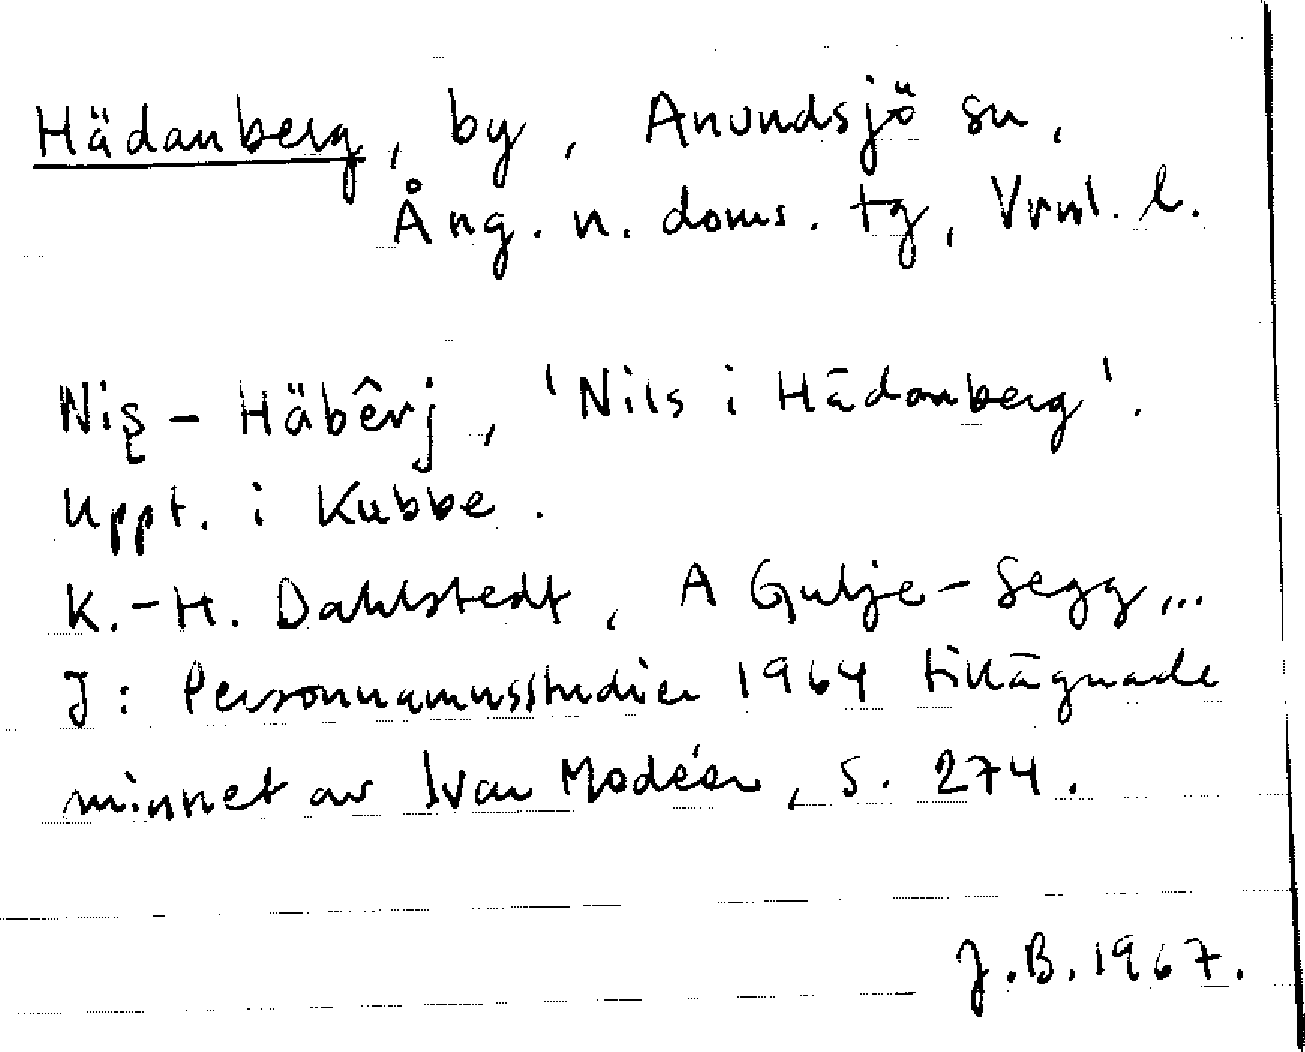 Hädanberg, by, Anundsjö sn,
Ång. n. doms. tg, Vrnl. l.
Niş - Häbêrj, 'Nils i Hädanberg'.
Uppt. i Kubbe.
K.-H. Dahlstedt, A Gulje-Segg...
J: Personnamnsstudier 1964 tillägnade
minnet av Ivar Modéer, s. 274.
J.B. 1967.